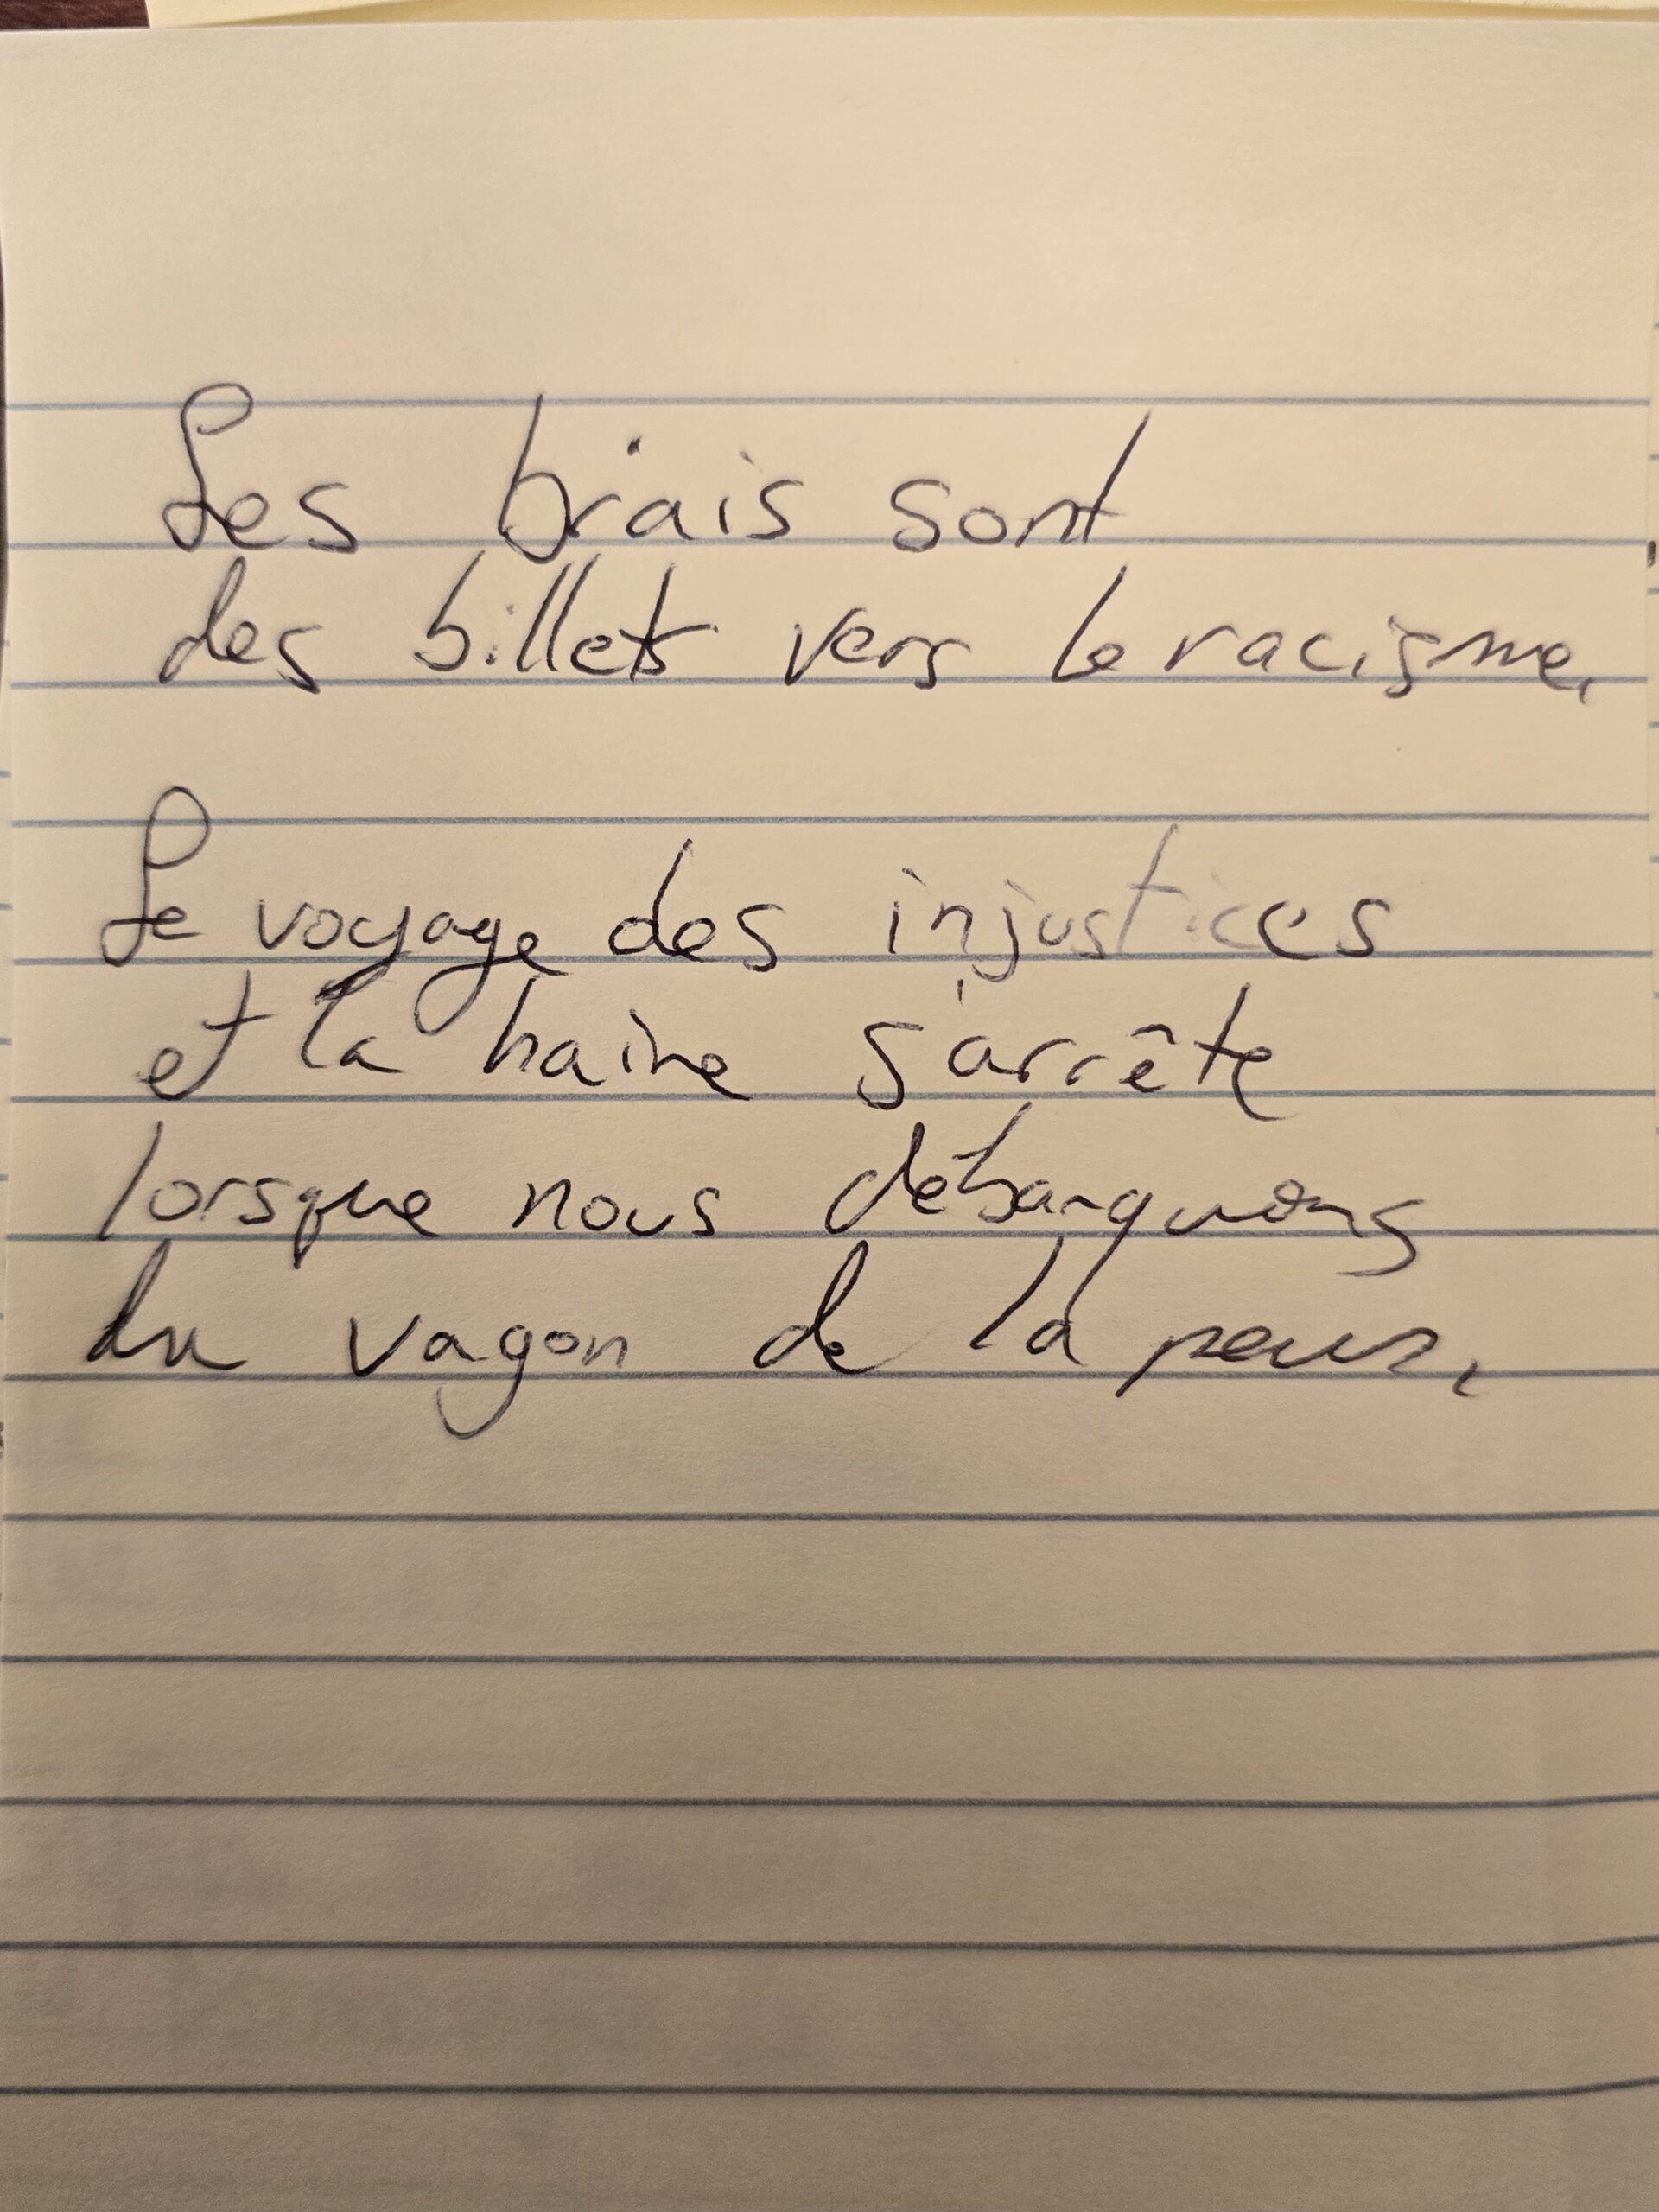 Les biais sont
des billets vers le racisme.
Le voyage des injustices
et la haine s'arrête
lorsque nous débarquons
du vagon de la peur.